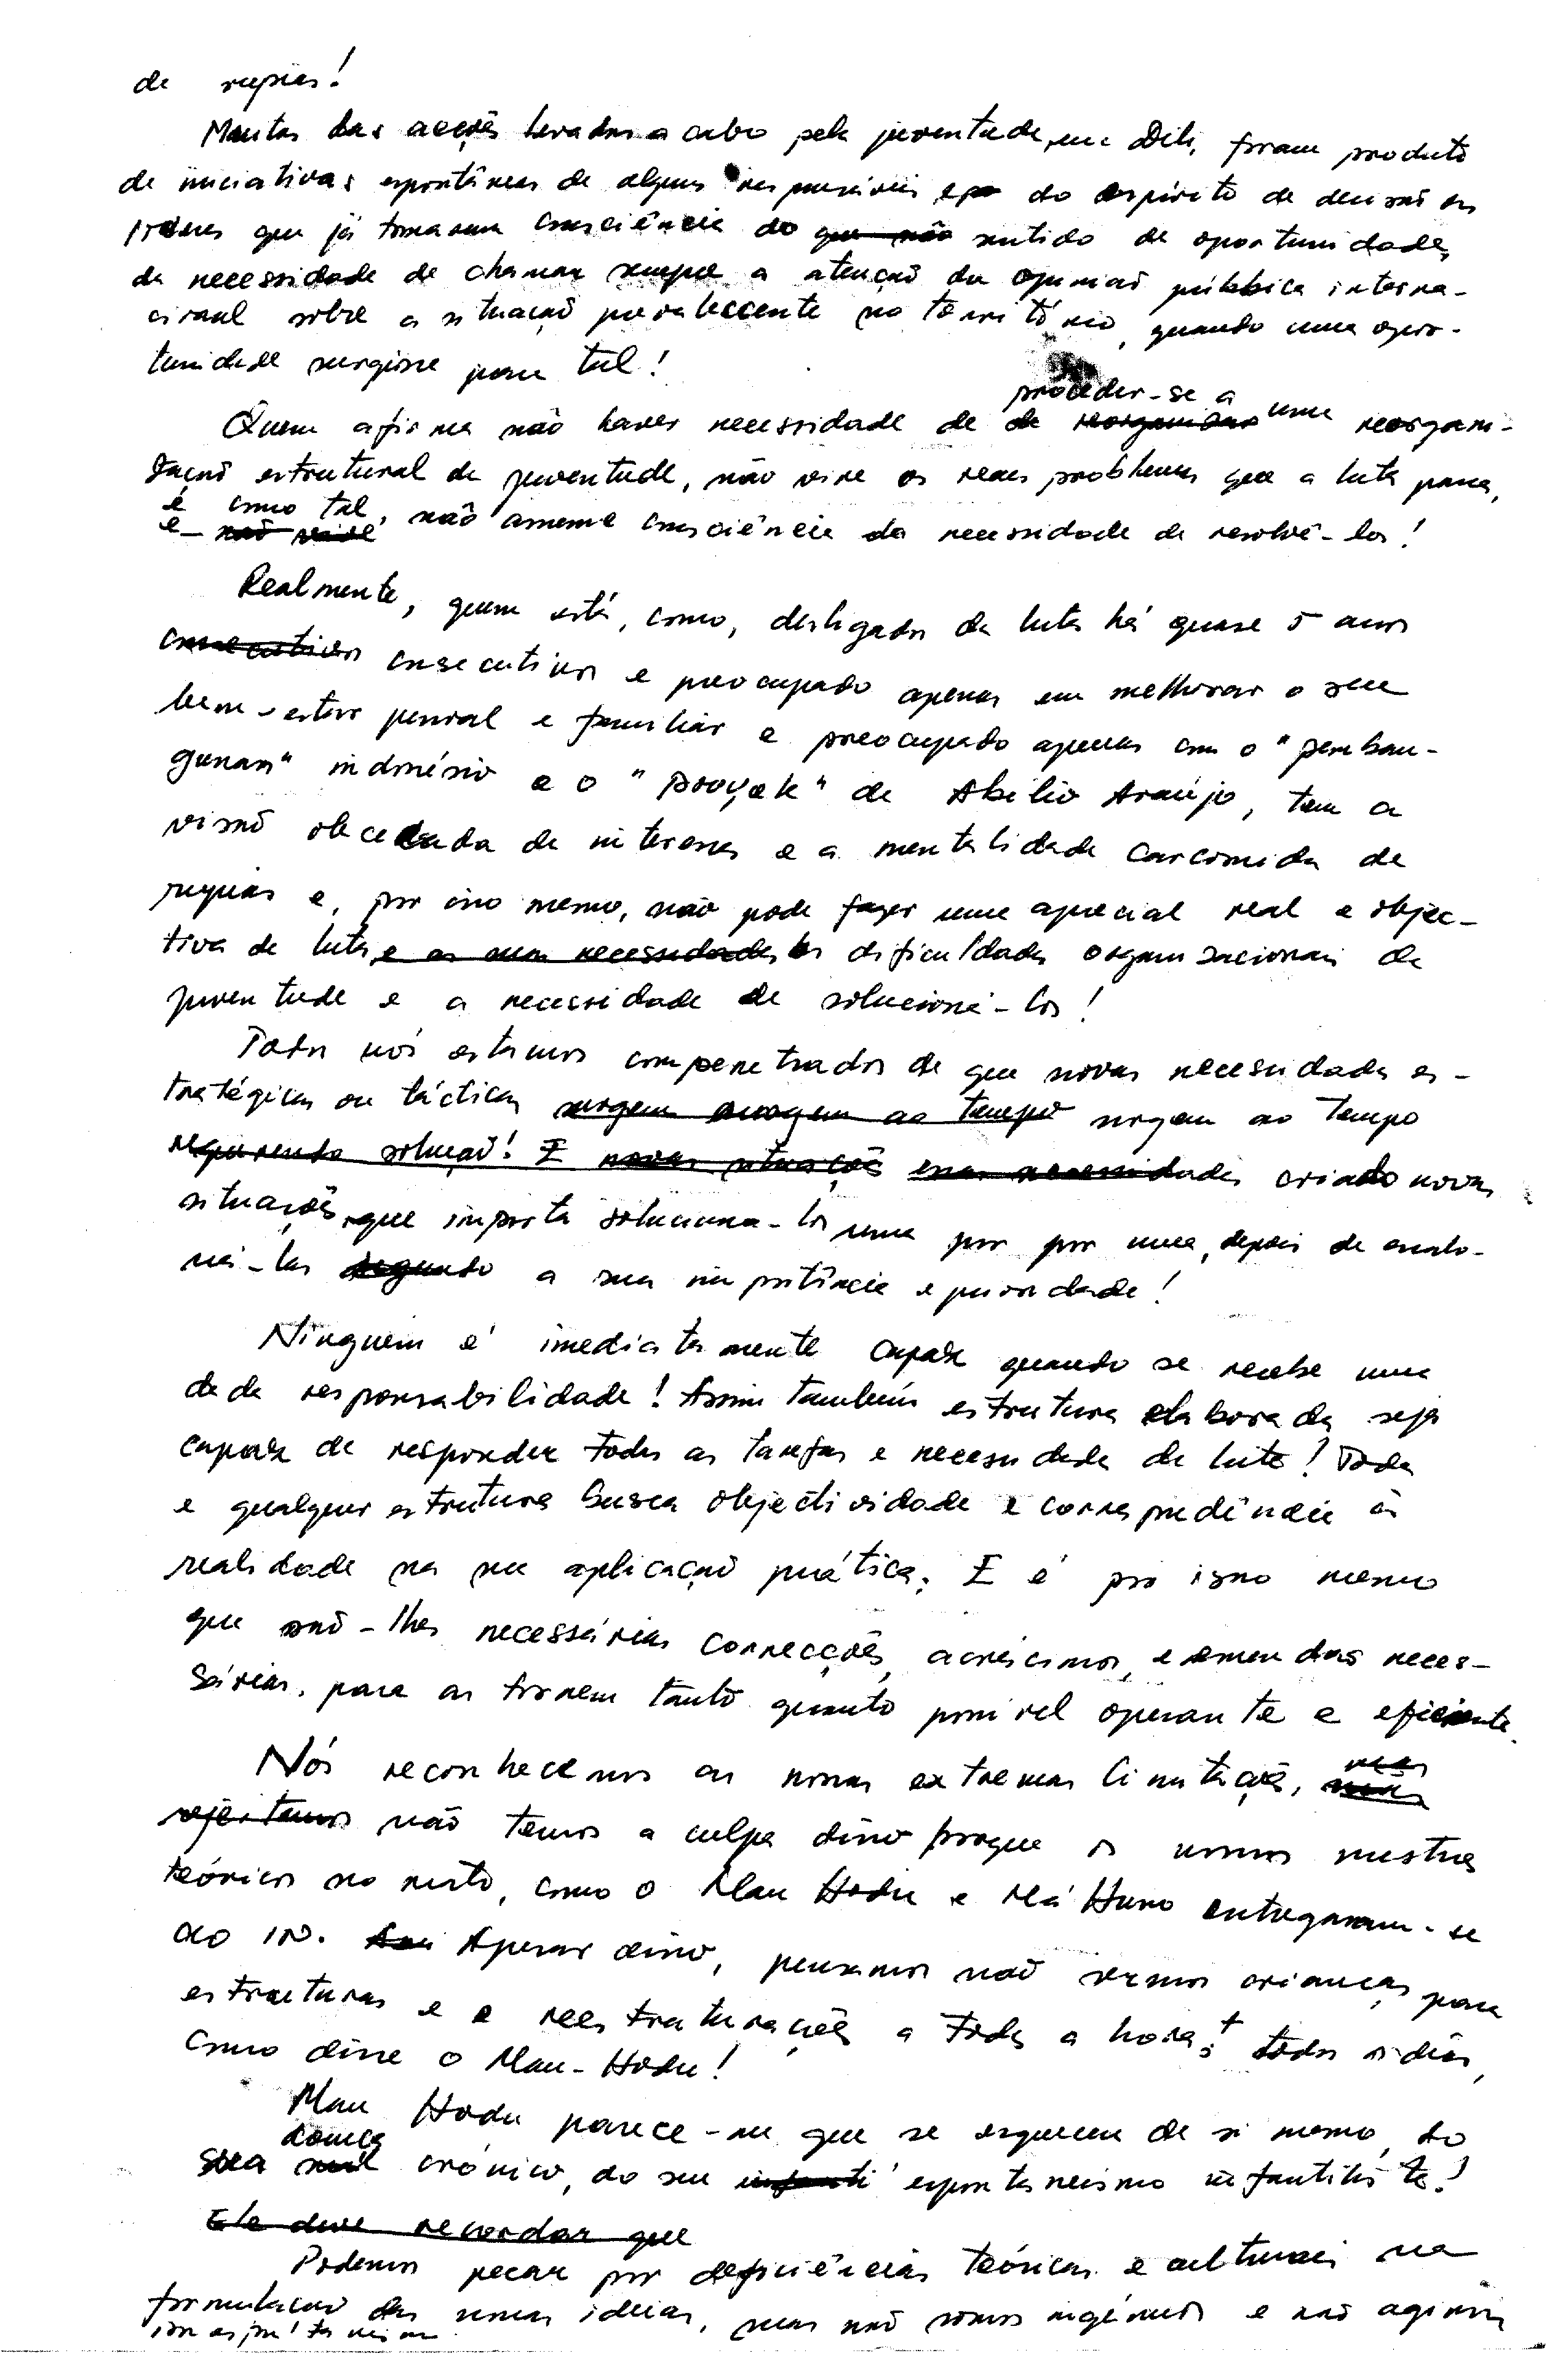 de rupias!
Muitas das acções levadas a cabo pela juventude, em Dili, foram produto
de iniciativas espontâneas de alguns responsáveis e do espírito de decisão os
jovens que já tomaram consciência do que não sentido de oportunidade,
da necessidade de chamar sempre a atenção da opinião pública interna-
cional sobre a situação prevalecente no território, quando uma opor-
tunidade surgisse para tal!
proceder-se a
Quem afirma não haver necessidade de de reorganizar uma reorgani-
zação estrutural da juventude, não vive os reais problemas que a luta passa,
e como tal,
e não vive não assume consciência da necessidade de resolvê-los!
Realmente, quem está, como, desligado da luta há quase 5 anos
consecutivos consecutivos e preocupado apenas em melhorar o seu
bem-estar pessoal e familiar e preocupado apenas com o "pemban-
gunan" indonésio e o "proyek" de Abílio Araújo, tem a
visão obcecada de interesses e a mentalidade carcomida de
rupias e, por isso mesmo, não pode fazer uma real e objec-
tiva da luta, e as suas necessidades as dificuldades organizacionais da
juventude e a necessidade de solucioná-los!
Todos nós estamos compenetrados de que novas necessidades es-
tratégicas ou tácticas surgem surgem ao tempo surgem ao tempo
requerendo solução! E novas situações essas necessidades criado novas
situações, que importa soluciona-los uma por por uma, depois de
a sua importância e prioridade!
Ninguém é imediatamente capaz quando se recebe uma
dada responsabilidade! Assim também estrutura elaborada seja
capaz de responder todas as tarefas e necessidades da luta! Toda
e qualquer estrutura busca objectividade e correspondência à
realidade na sua aplicação prática. E é por isso mesmo
que são-lhes necessárias correcções, acréscimos, e emendas neces-
sárias, para as tornem tanto quanto possível operante e eficiente.
Nós reconhecemos as nossas extremas limitações, mas
rejeitamos não temos a culpa disso porque os nossos mestres
teóricos no mato, como o Mau Hodu e Má Huno entregaram-se
ao IN. Apesar disso, pensamos não sermos crianças para
estruturas e e reestruturações a toda a hora, todos os dias,
como disse o Mau-Hodu!
Mau Hodu parece-me que se esqueceu de si mesmo, do
doença
sua mal crónico, do seu infanti espontaneismo infantilista!
Ele deve recordar que
Podemos pecar por deficiências teóricas e culturais na
formulação das nossas ideias, mas não somos ingénuos e não agimos